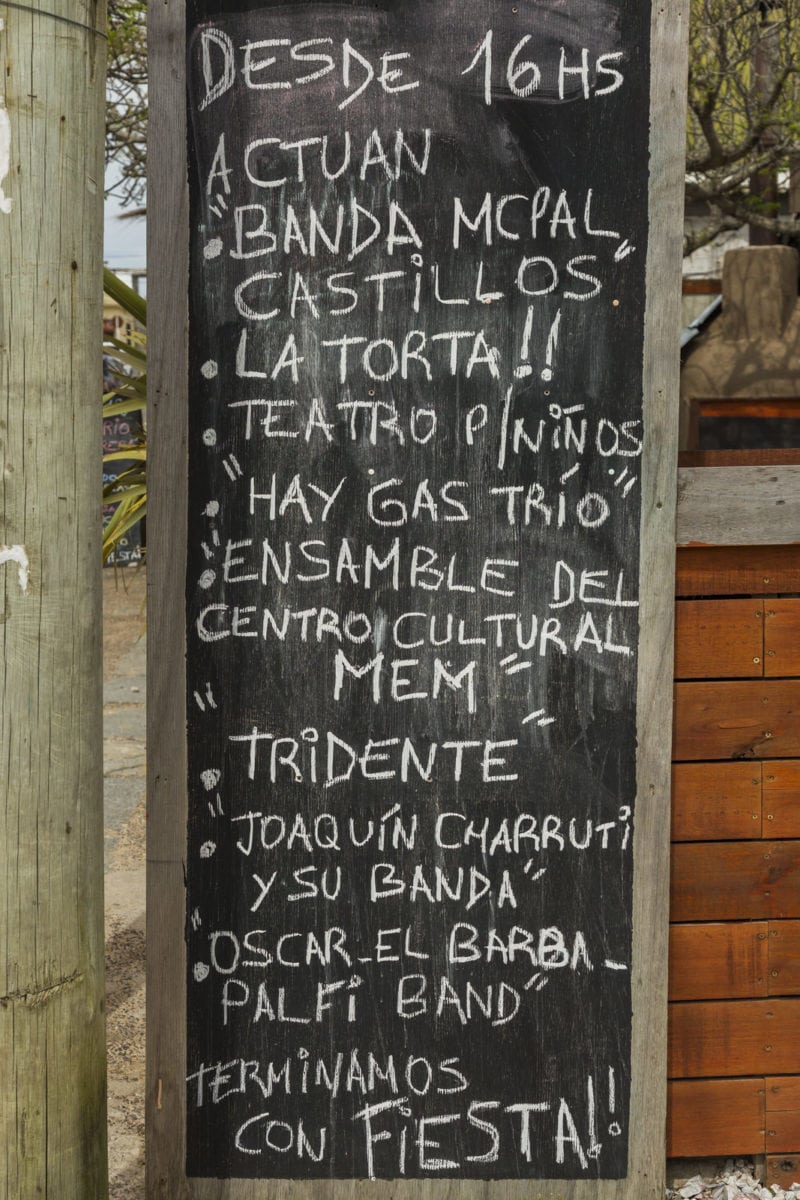 DESDE 16HS
ACTUAN
• "BANDA MCPAL
CASTILLOS"
• LA TORTA!!
• TEATRO P/NIÑOS
• "HAY GAS TRÍO"
• "ENSAMBLE DEL
CENTRO CULTURAL
MEM"
• "TRIDENTE"
• "JOAQUÍN CHARRUTI
Y SU BANDA"
• "OSCAR-EL BARBA-
PALFI BAND"
TERMINAMOS
CON FIESTA!!